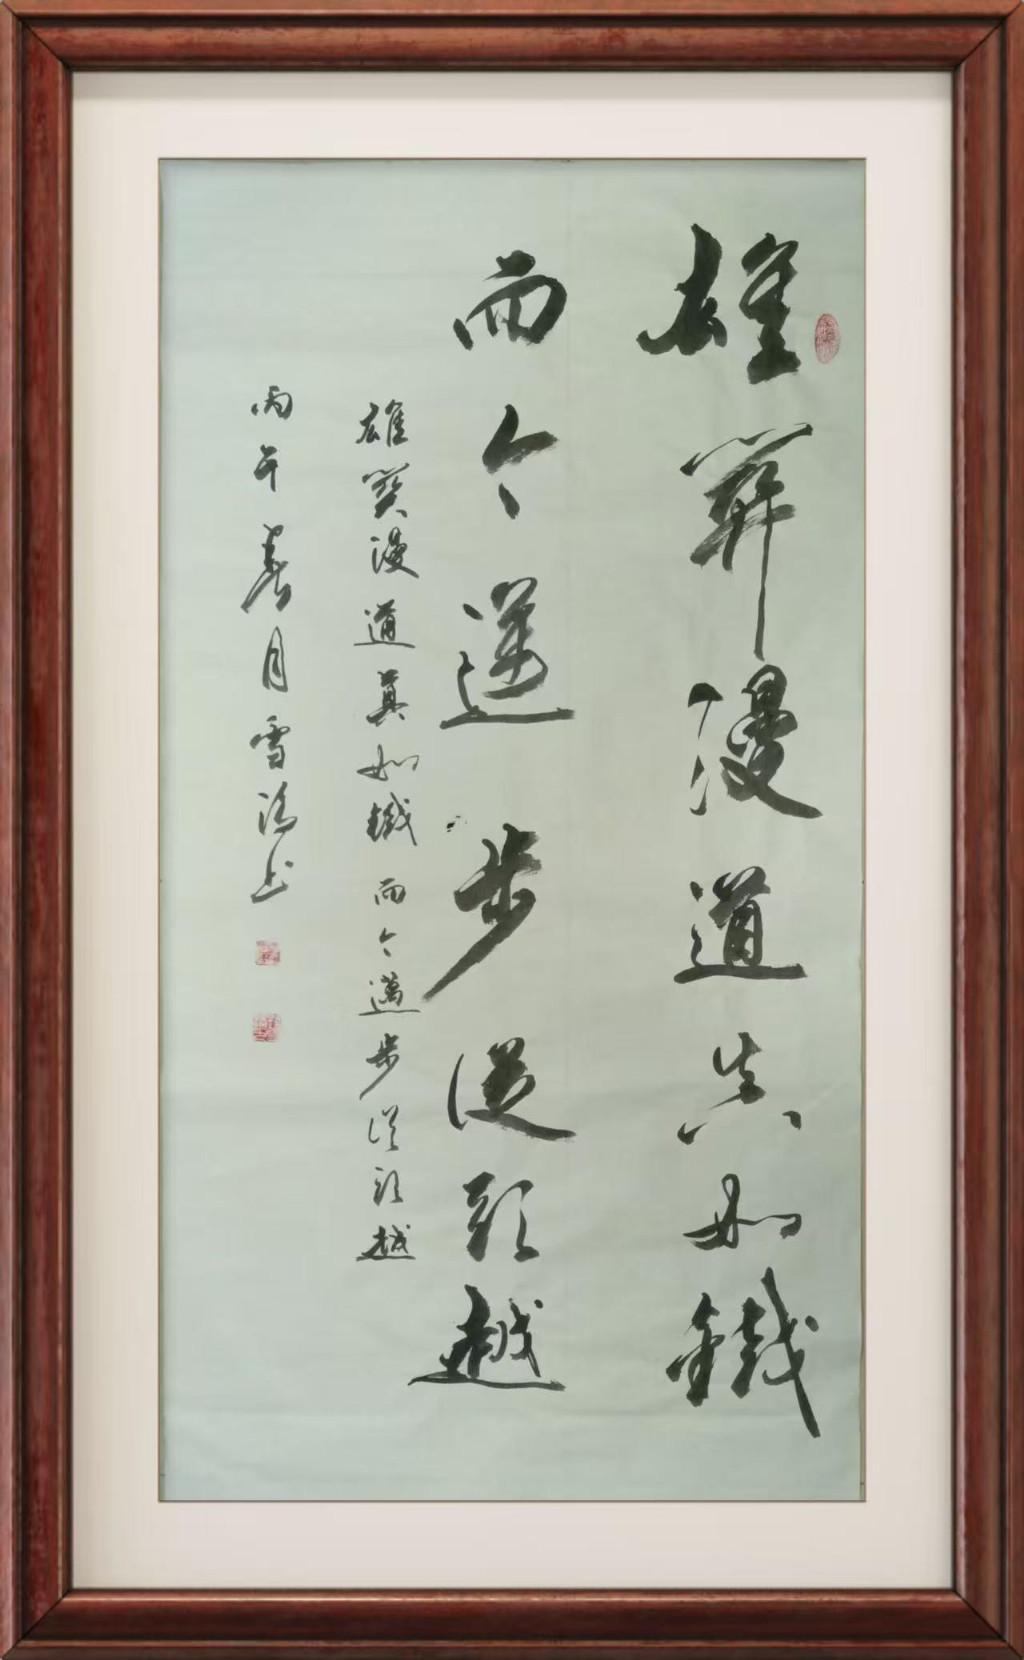 雄關漫道真如鐵
而今邁步從頭越
雄關漫道真如鐵 而今邁步從頭越
丙午春月雪书